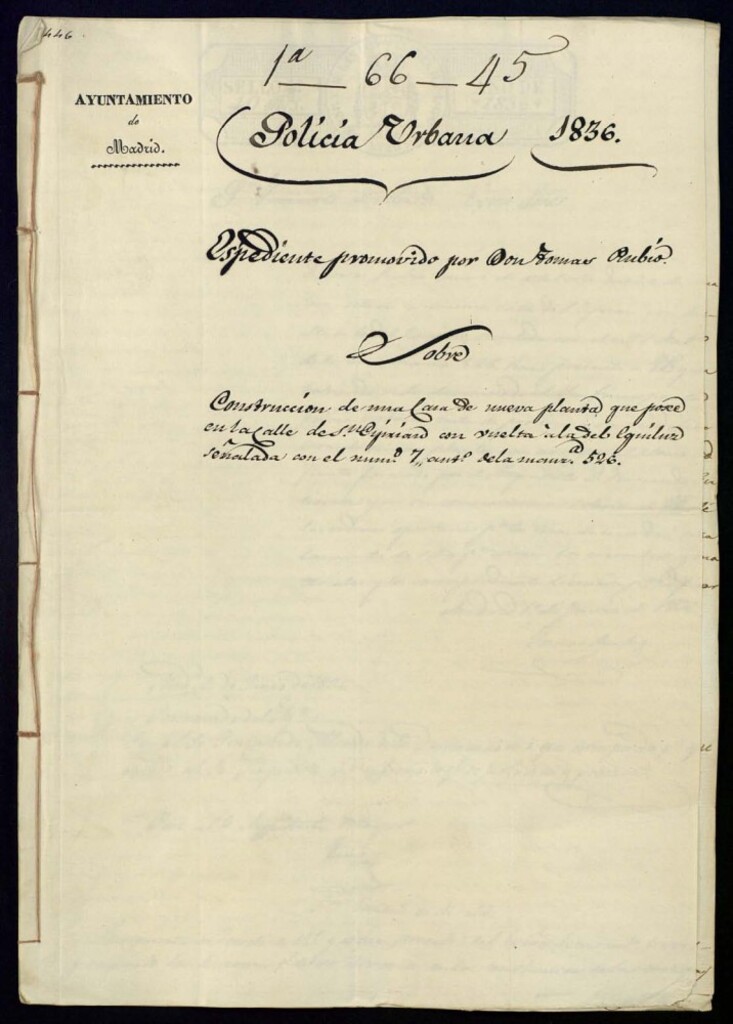 446.
1ª — 66 — 45
AYUNTAMIENTO
de
Madrid.
Policia Urbana 1836.
Espediente promovido por Don Tomas Rubio.
Sobre
Construccion de una Casa de nueva planta que posee
en la Calle de Sⁿ Cipriano con vuelta á la del Eguiluz
señalada con el numº 7,, antº de la manzª 526.